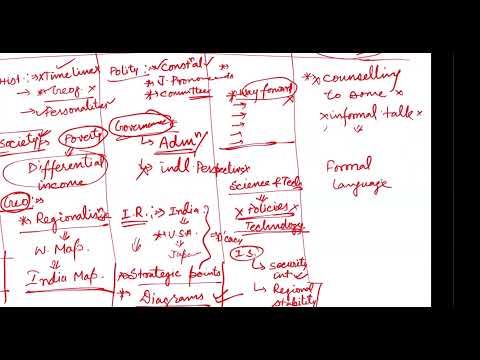 Hist :→ x Timeline x
→ * Geog x
→ Personalities
Society
Poverty
Differential
income
Geo :
* Regionalin
W. Map.
India Map.
Polity :→ ✓ Constnal ✓
→ * J. Pronoun
→ * committee
Governance *
→ Admn
→ indl. Perspective x
I.R. :→ India
→ * U.S.A.
Japan
→ D'cacy
→ Strategic points
* Diagrams ✓
* Way forward
→
→
→
→
Science & Tech
x Policies x
Technology
I.S. :
→ Security
→ Regional
Stability
* x counselling
to some x
x informal talk x
Formal
language